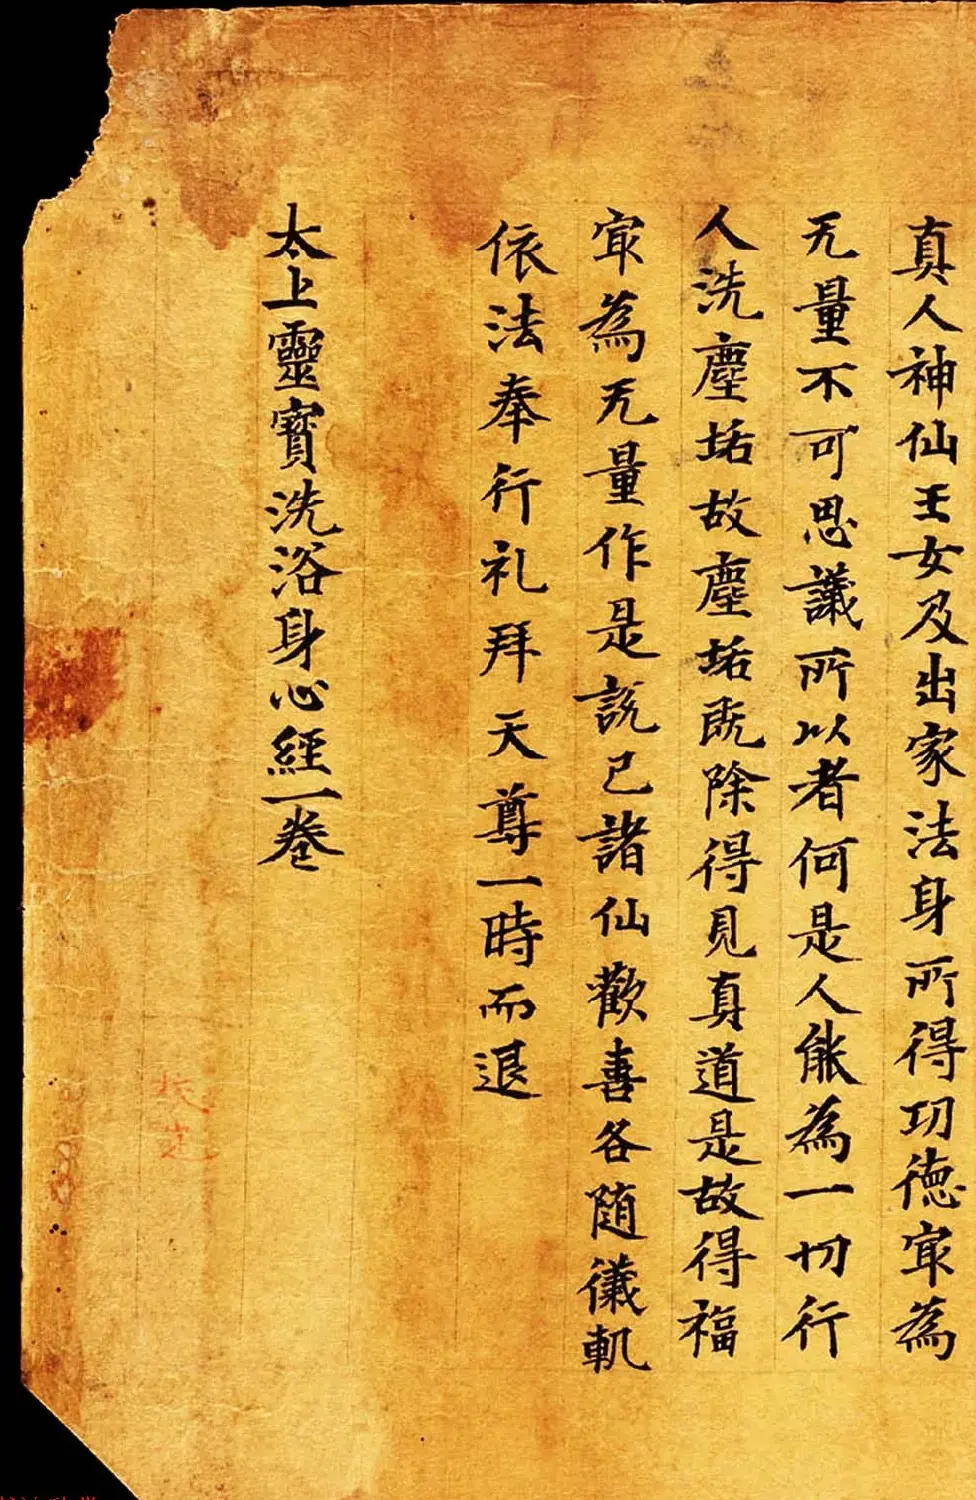 真人神仙玉女及出家法身所得功德冣為
无量不可思議所以者何是人能為一切行
人洗塵垢故塵垢既除得見真道是故得福
冣為无量作是說已諸仙歡喜各随儀軌
依法奉行礼拜天尊一時而退
太上靈寳洗浴身心經一卷